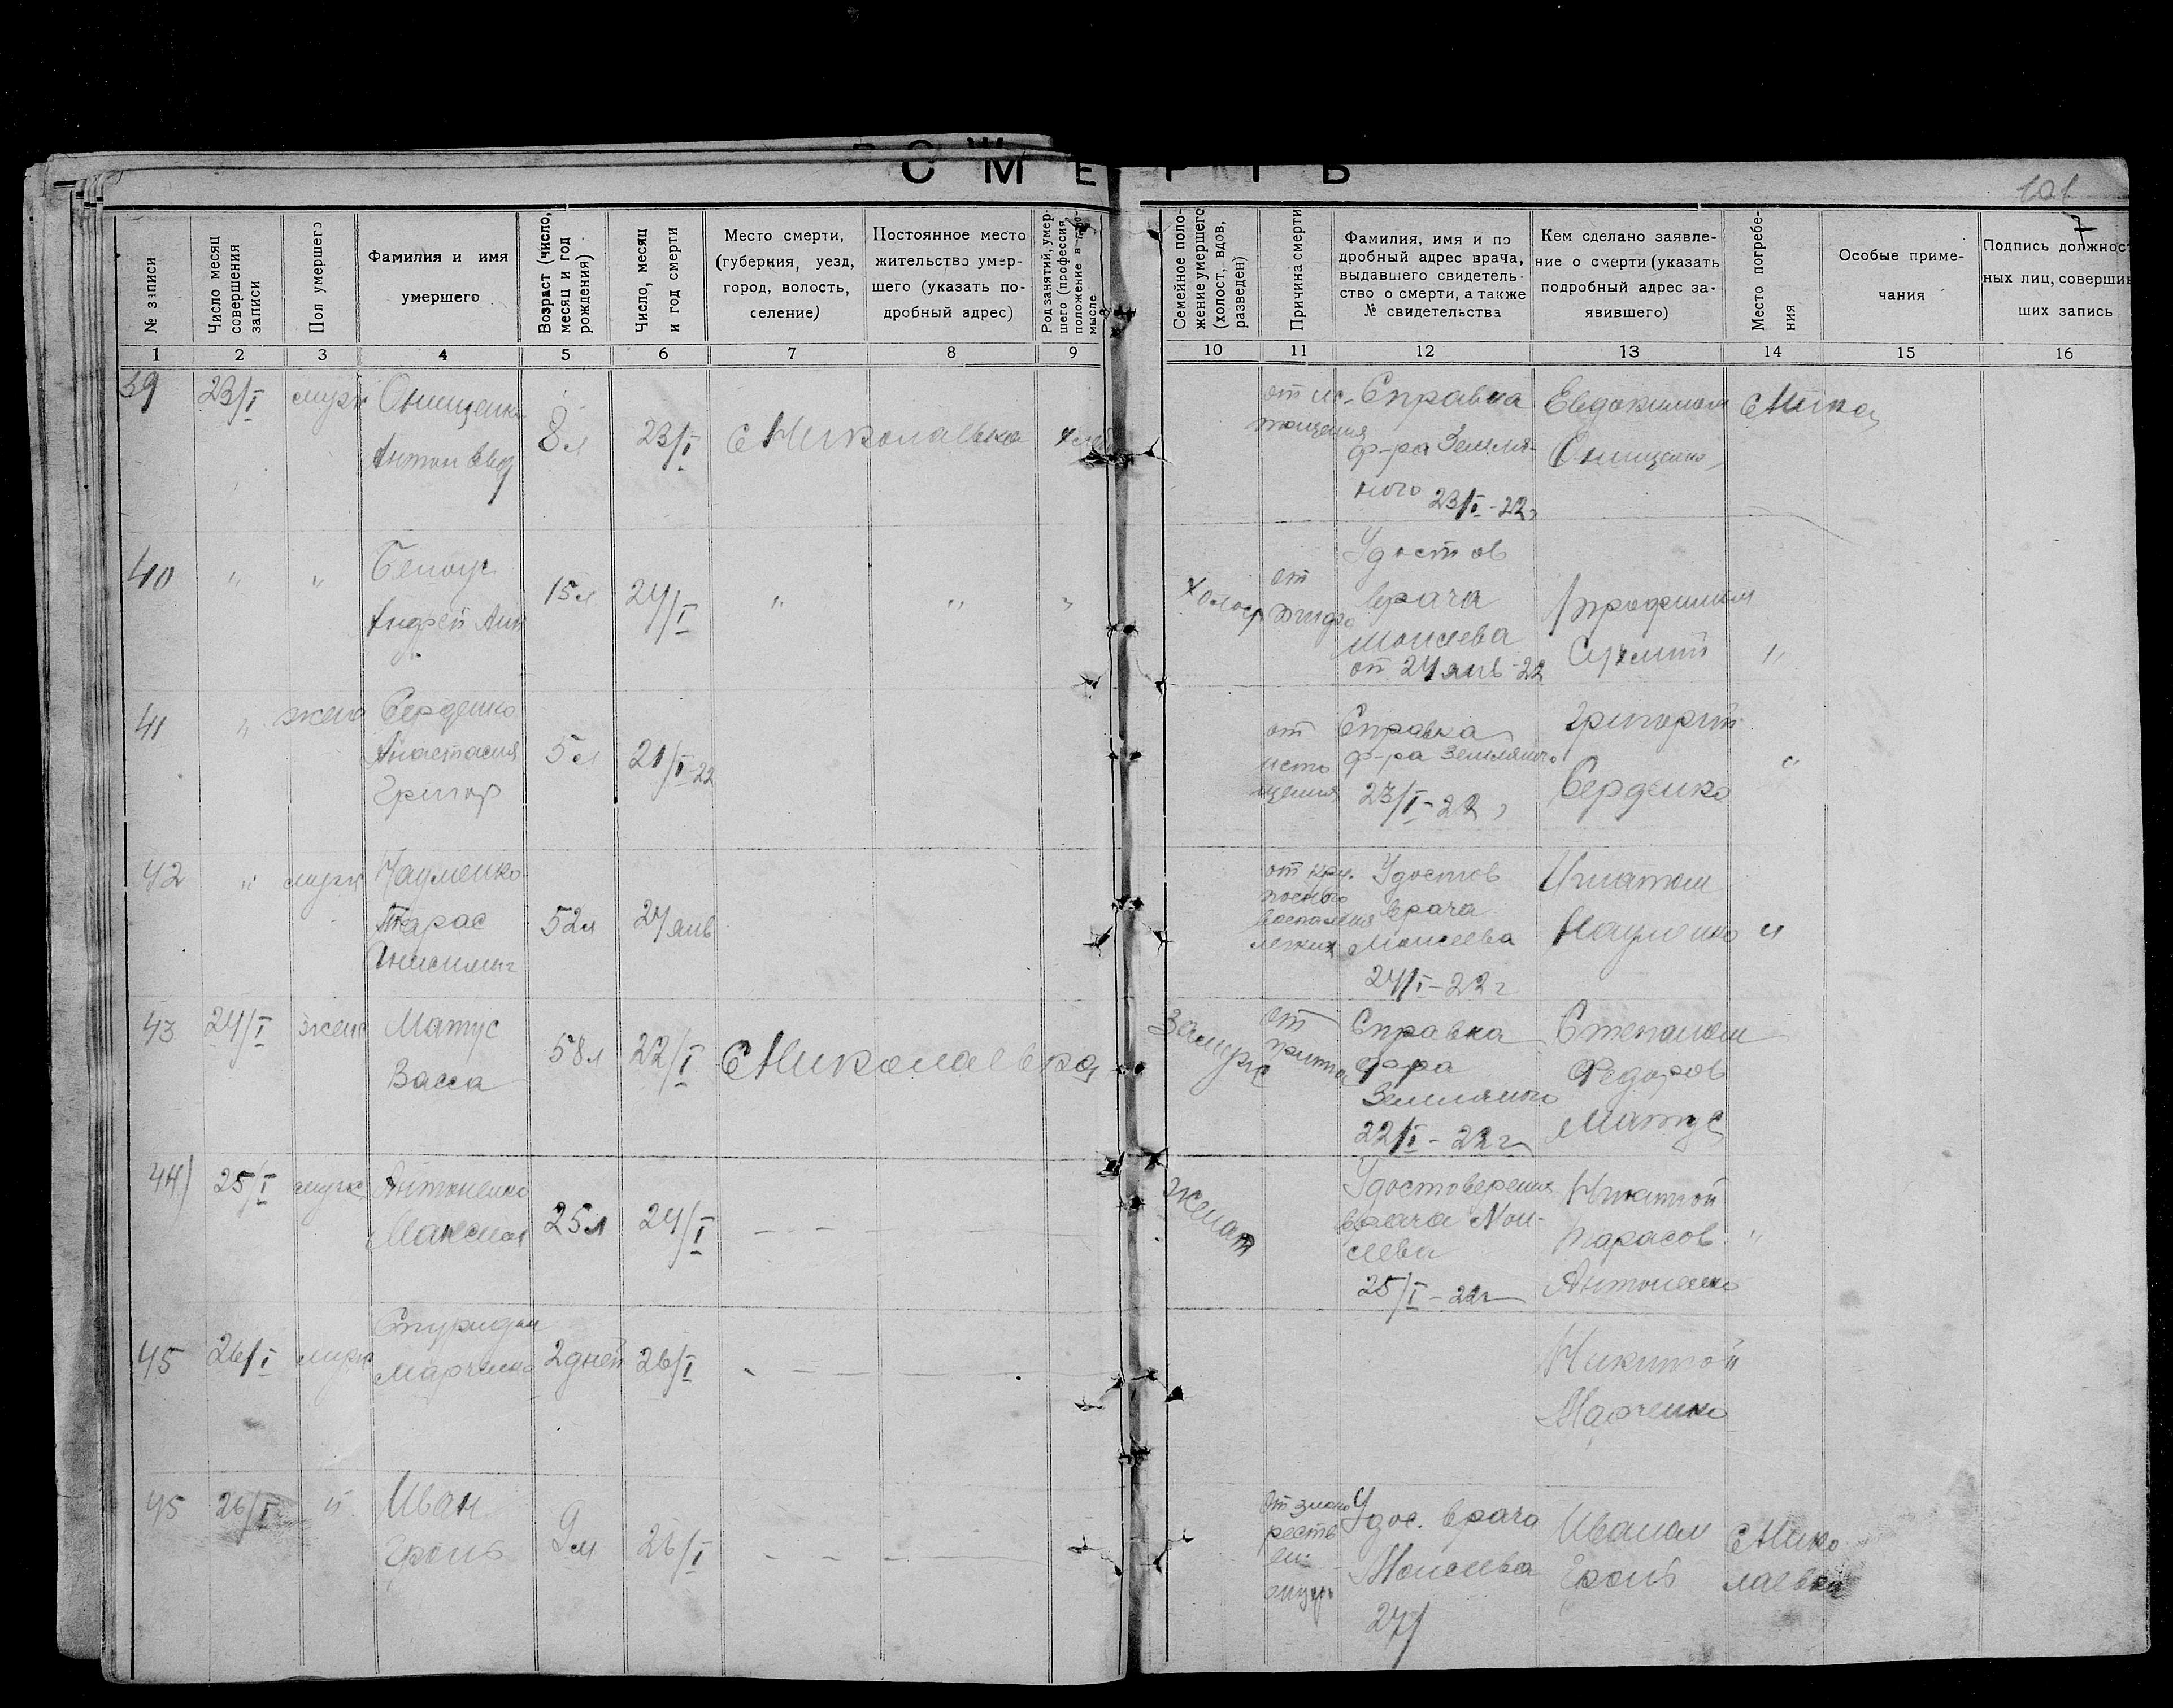 СМЕРТЬ
101
7
№ записи
Число месяц совершения записи
Пол умершего
Фамилия и имя умершего
Возраст (число, месяц и год рождения)
Число, месяц и год смерти
Место смерти, (губерния, уезд, город, волость, селение)
Постоянное место жительства умершего (указать подробный адрес)
Род занятий, умершего (профессия, положение в промысле
Семейное положение умершего (холост, вдов, разведен)
Причина смерти
Фамилия, имя и подробный адрес врача, выдавшего свидетельство о смерти, а также № свидетельства
Кем сделано заявление о смерти (указать подробный адрес заявившего)
Место погребения
Особые примечания
Подпись должностных лиц, совершивших запись
1 2 3 4 5 6 7 8 9 10 11 12 13 14 15 16
39 23/I муж Онищенко 8л 23/I с Николаевка от ис- Справка Евдокимом
Антон Евд тощения ф-ра Земля- Онищенко
ного 23/I-22г
40 " " Белоус 15л 24/I " " " Холост от Удостов Трофимом "
Андрей врача
Моисеева
от 24 янв-22
41 " жен Серденко 5л 21/I-22 от Справка Григорий "
Анастасия исто ф-ра Земляного Серденко
Григор щения 23/I-22г
42 " муж Науменко 52л 24 янв от кру- Удостов Игнатом "
Тарас позного врача Науменко
Анисимов воспаления Моисеева
легких 24/I-22г
43 24/I жен Матус 58л 22/I с Николаевка Замуж от Справка Степаном
Васса ф-ра Федоров
Земляного Матус
22/I-22г
44) 25/I муж Антоненко 25л 24/I — — Женат Удостоверения "
Максим врача Мои- Тарасов
сеева Антоненко
25/I-22г
45 26/I муж 2 дней 26/I — — Никитой
Марченко Марченко
45 26/I " Иван 9м 26/I — — Удос. врача Иваном с Нико
Гроль Моисеева Гроль лаевка
27/